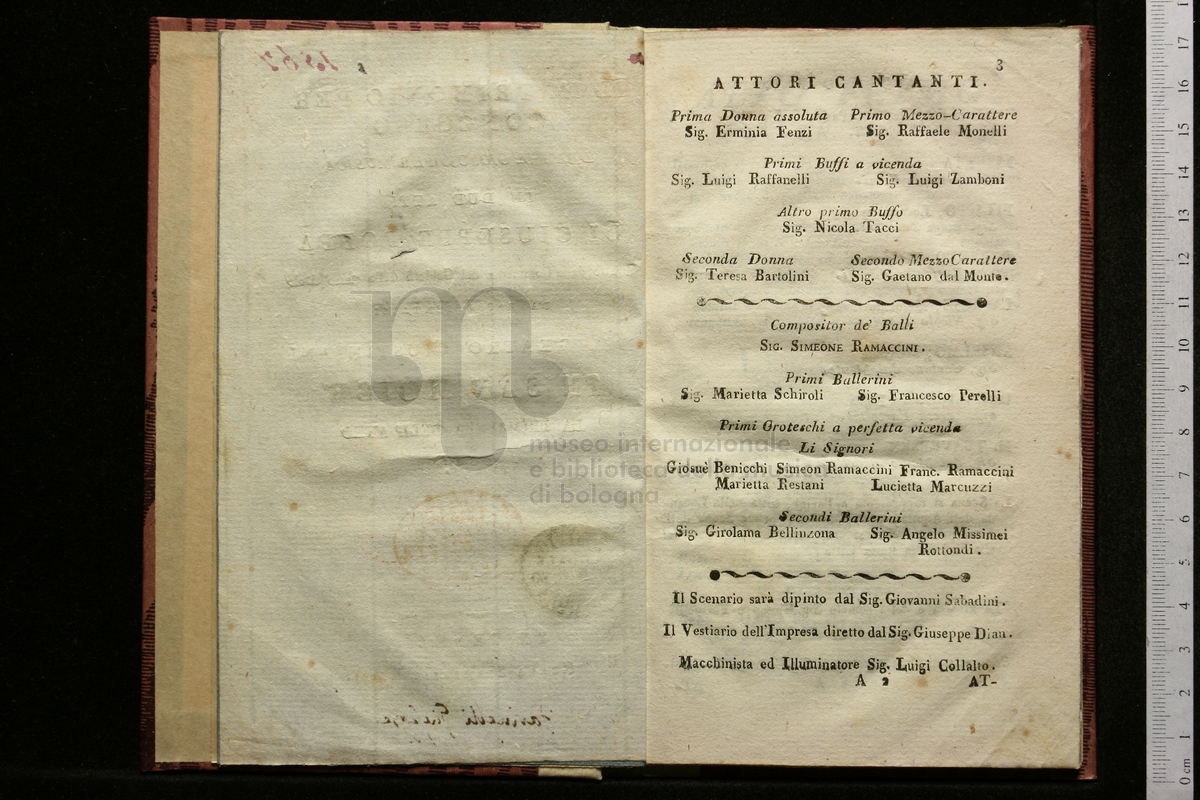 3
ATTORI CANTANTI.
Prima Donna assoluta Primo Mezzo-Carattere
Sig. Erminia Fenzi Sig. Raffaele Monelli
Primi Buffi a vicenda
Sig. Luigi Raffanelli Sig. Luigi Zamboni
Altro primo Buffo
Sig. Nicola Tacci
Seconda Donna Secondo Mezzo Carattere
Sig. Teresa Bartolini Sig. Gaetano dal Monte.
Compositor de' Balli
SIG. SIMEONE RAMACCINI.
Primi Ballerini
Sig. Marietta Schiroli Sig. Francesco Perelli
Primi Groteschi a perfetta vicenda
Li Signori
Giosuè Benicchi Simeon Ramaccini Franc. Ramaccini
Marietta Restani Lucietta Marcuzzi
Secondi Ballerini
Sig. Girolama Bellinzona Sig. Angelo Missimei
Rottondi.
Il Scenario sarà dipinto dal Sig. Giovanni Sabadini.
Il Vestiario dell'Impresa diretto dal Sig. Giuseppe Dian.
Macchinista ed Illuminatore Sig. Luigi Collalto.
A 2 AT-
museo internazionale
e biblioteca della musica
di bologna
0 cm 1 2 3 4 5 6 7 8 9 10 11 12 13 14 15 16 17